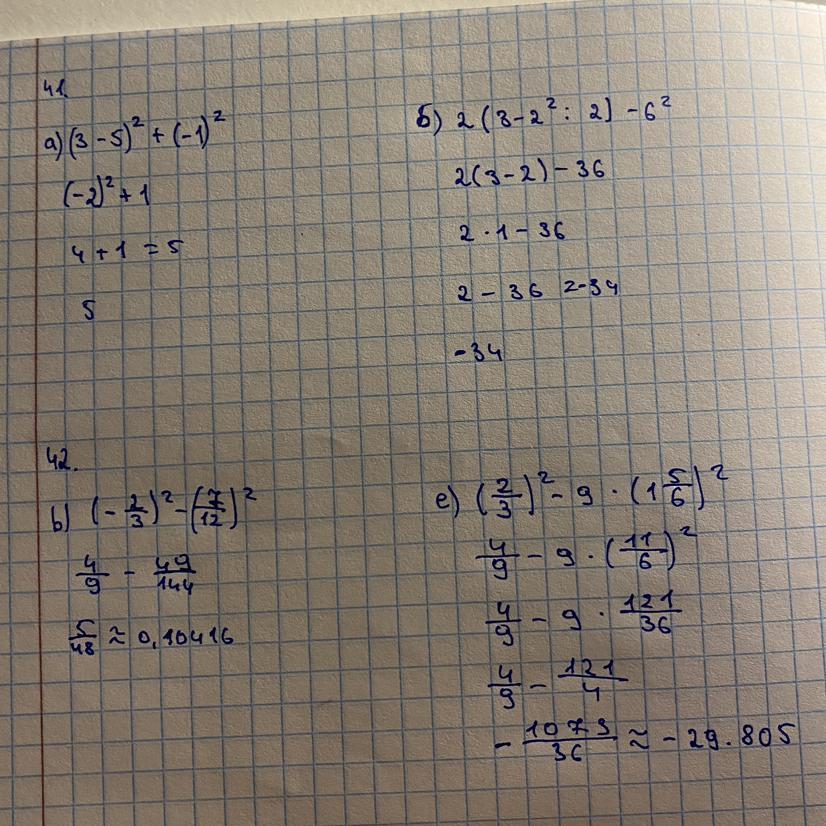 41.
а) (3 - 5)² + (-1)²
(-2)² + 1
4 + 1 = 5
5
б) 2 (3 - 2² : 2) - 6²
2(3 - 2) - 36
2 · 1 - 36
2 - 36 = -34
-34
42.
b) (-2/3)² - (7/12)²
4/9 - 49/144
5/48 ≈ 0,10416
e) (2/3)² - 9 · (1 5/6)²
4/9 - 9 · (11/6)²
4/9 - 9 · 121/36
4/9 - 121/4
- 1073/36 ≈ - 29.805